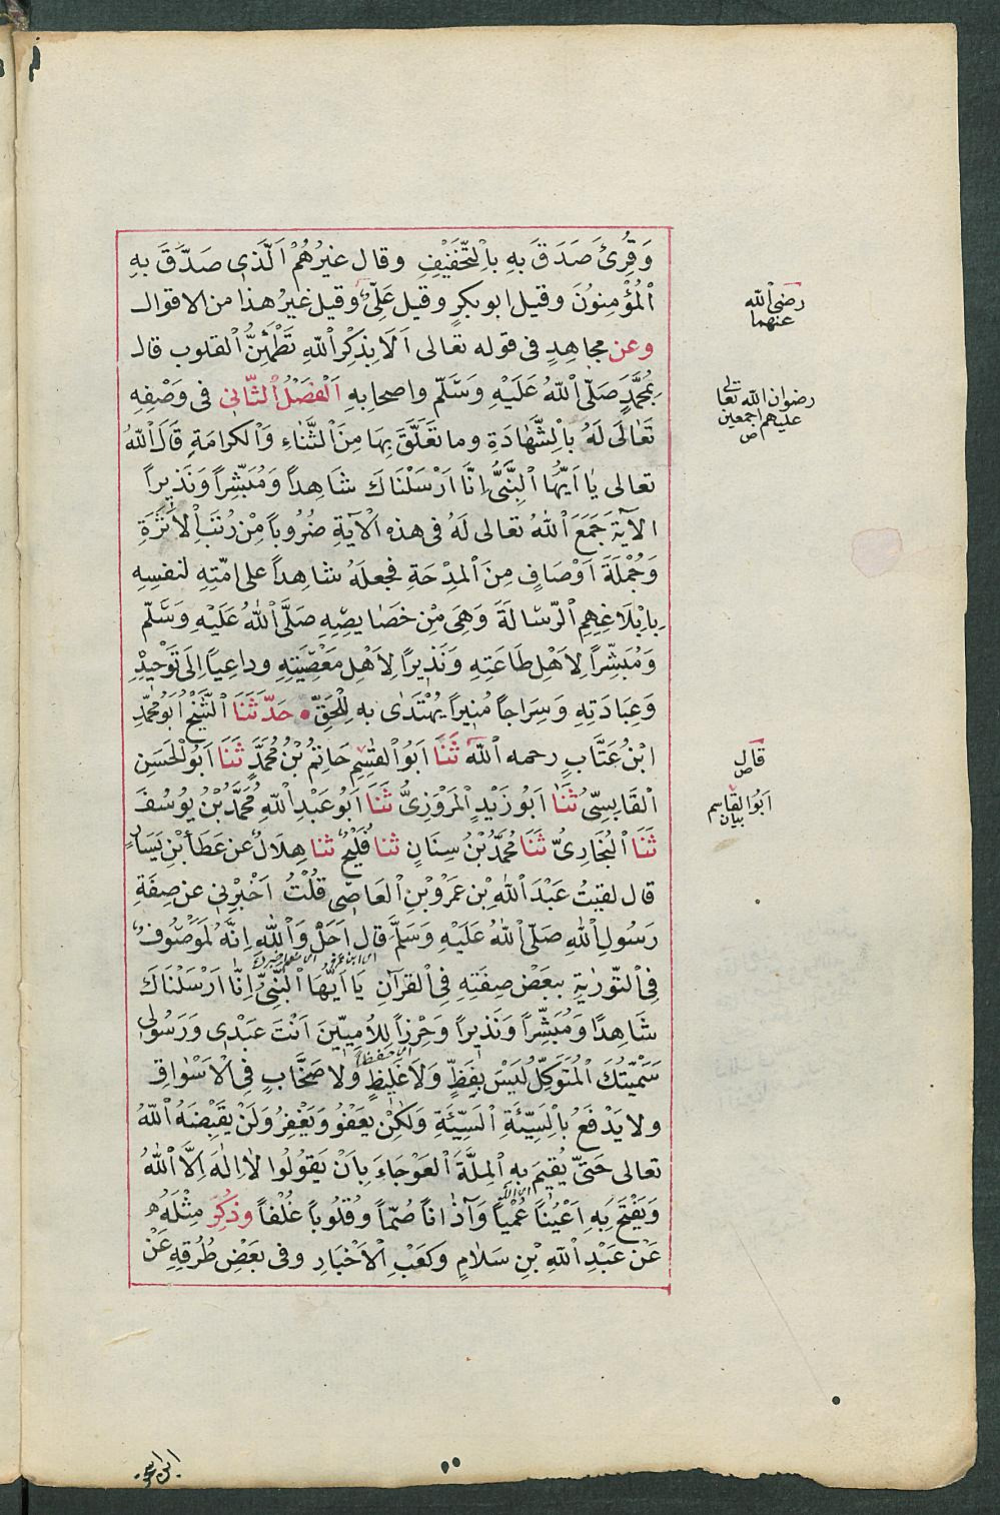 وَقُرِئَ صَدَقَ بِهِ بِالتَّخْفِيفِ وقال غيرُهُمْ الَّذى صَدَّقَ بِهِ
الْمُؤْمِنُونَ وقيل ابو بكرٍ وقيل عَلِىٌّ وقيل غيرُ هذا من الاقوال
وعن مجاهِدٍ فى قوله تعالى اَلَا بِذِكْرِ اللهِ تَطْمَئِنُّ القلوب قال
بِمُحَمَّدٍ صَلَّى اللهُ عَلَيْهِ وَسَلَّم واصحابِهِ اَلْفَصْلُ الثَّانى فى وَصْفِهِ
تَعَالَى لَهُ بِالشَّهَادَةِ وما تَعَلَّقَ بِهَا مِنَ الثَّنَاءِ وَالْكرامَةِ قَالَ اللهُ
تعالى يَا اَيُّهَا النَّبِىُّ اِنَّا اَرْسَلْنَاكَ شَاهِداً وَمُبَشِّراً وَنَذِيراً
الآيَةَ جَمَعَ اللهُ تعالى لَهُ فى هذه الْآيَةِ ضُرُوباً مِنْ رُتَبِ الْاَثَرَةِ
وَجُمْلَةَ اَوْصَافٍ مِنَ الْمِدْحَةِ فجعلَهُ شاهِداً على امّتِهِ لنفسِهِ
بِاِبْلَاغِهِمِ الرّسَالَةَ وَهِىَ مِنْ خَصَايِصِهِ صَلَّى اللهُ عَلَيْهِ وَسَلَّم
وَمُبَشِّراً لِاَهْلِ طَاعَتِهِ وَنَذِيراً لِاَهْلِ مَعْصِيَتِهِ وداعِياً اِلَى تَوْحِيدِهِ
وَعِبَادَتِهِ وَسِرَاجاً مُنِيراً يُهْتَدٰى به لِلْحَقِّ حَدَّثَنَا الشَّيْخُ اَبُو مُحَمَّدِ
ابْنُ عَتَّابٍ رحمه الله ثَنَا اَبُو القٰسِمِ حَاتِمُ بْنُ مُحَمَّدٍ ثَنَا اَبُو الْحَسَنِ
الْقَابِسِىُّ ثَنَا اَبُو زَيْدٍ الْمَرْوَزِىُّ ثَنَا اَبُو عَبْدِ اللهِ مُحَمَّدُ بْنُ يُوسُفَ
ثَنَا الْبُخَارِىُّ ثَنَا مُحَمَّدُ بْنُ سِنَانٍ ثنا فُلَيْحٌ ثنا هِلَالٌ عن عَطَاءِ بْنِ يَسَارٍ
قال لقيتُ عَبْدَ اللهِ بْنَ عَمْرِو بْنِ الْعَاصِى قُلْتُ اَخْبِرْنِى عن صِفَةِ
رَسُولِ اللهِ صَلَّى اللهُ عَلَيْهِ وَسَلَّم قال اَجَلْ وَاللهِ اِنَّهُ لَمَوْصُوفٌ
فِى التَّوْرٰيةِ ببَعْضِ صِفَتِهِ فِى الْقُرآنِ يَا اَيُّهَا النَّبِىُّ اِنَّا اَرْسَلْنَاكَ
شَاهِدًا وَمُبَشِّراً وَنَذِيراً وَحِرْزاً لِلْاُمِيِّينَ اَنْتَ عَبْدِى وَرَسُولى
سَمَّيْتُكَ الْمُتَوَكِّلَ لَيْسَ بِفَظٍّ وَلَا غَلِيظٍ وَلَا صَخَّابٍ فِى الْاَسْوَاقِ
ولا يَدْفَعُ بِالسَّيِّئَةِ السَّيِّئَةَ وَلٰكِنْ يَعْفُو وَيَغْفِرُ وَلَنْ يَقْبِضَهُ اللهُ
تعالى حَتّى يُقِيمَ بِهِ الْمِلَّةَ الْعَوْجَاءَ بِاَنْ يَقُولُوا لَا اِلٰهَ اِلَّا اللهُ
وَيَفْتَحَ بِهِ اَعْيُنًا عُمْياً وَآذَاناً صُمّاً وَقُلُوباً غُلْفاً وَذُكِرَ مِثْلُهُ
عَنْ عَبْدِ اللهِ بْنِ سَلَامٍ وَكَعْبِ الْاَخْبَارِ وفى بَعْضِ طُرُقِهِ عَنْ
رضى الله
عنهما
رضوان الله تعالى
عليهم اجمعين
ص
قال
ص
اَبُو القَاسِم
بيان
ابن اسحق